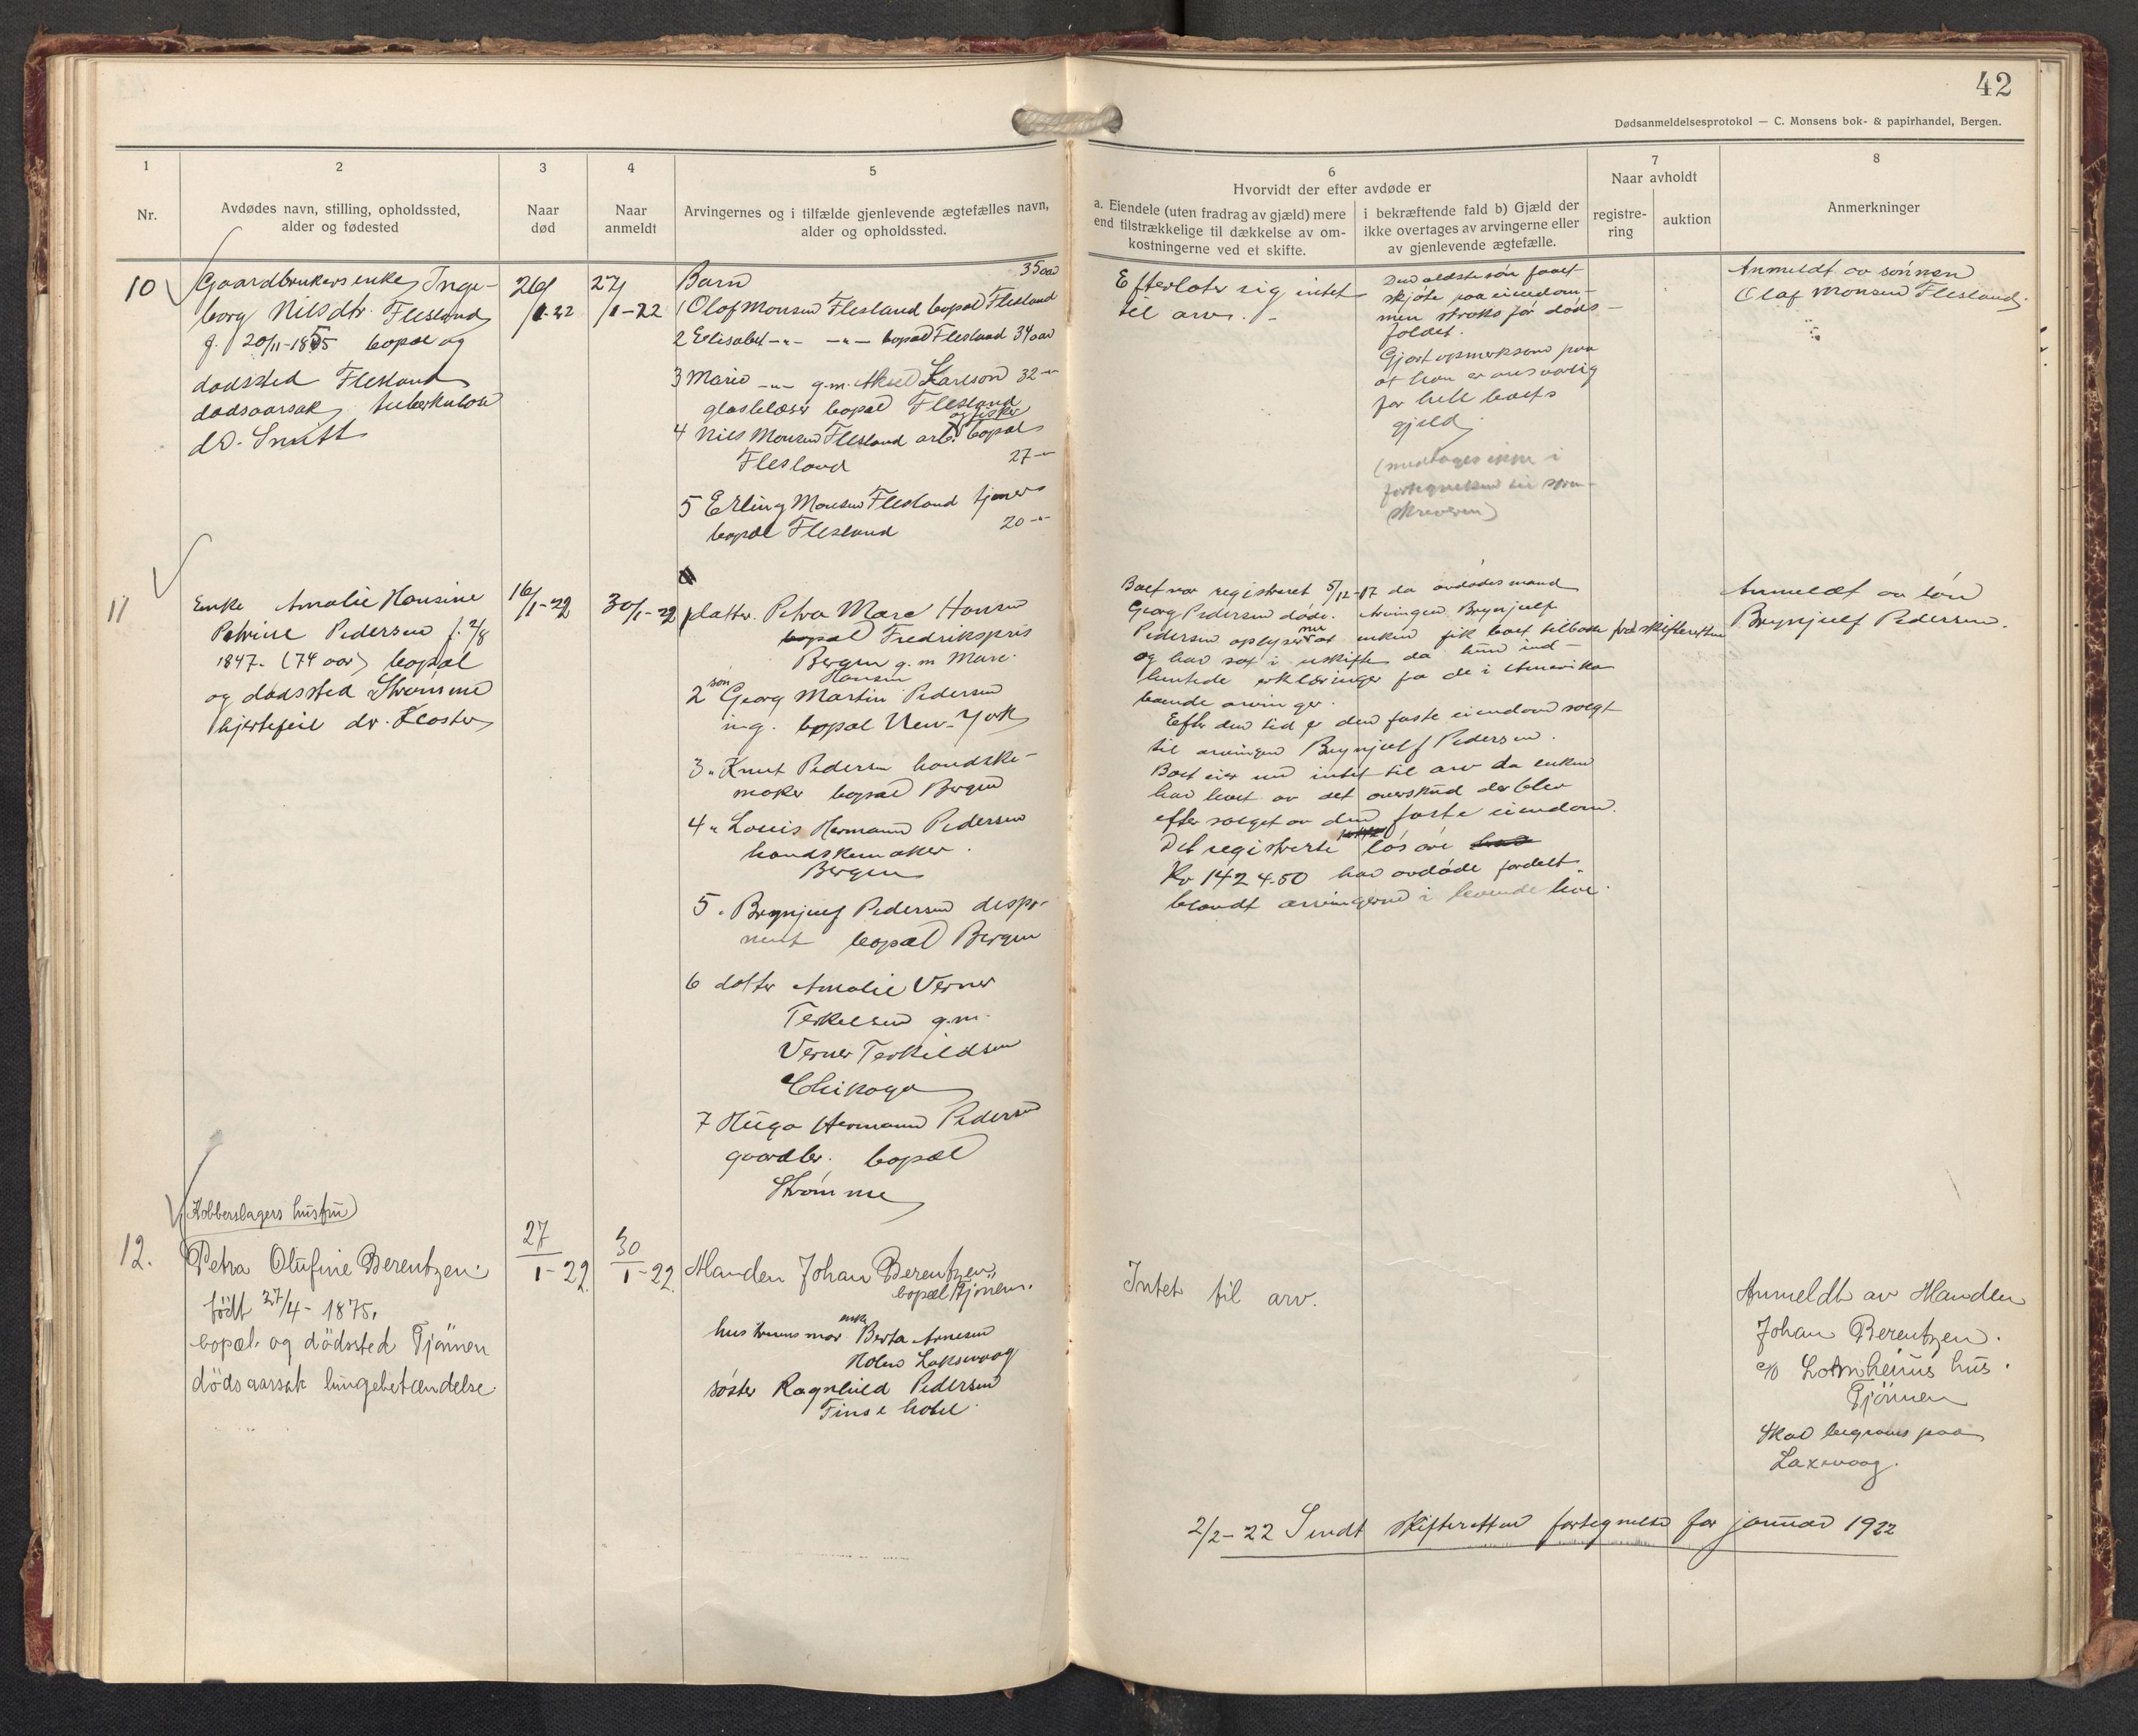 42
Dødsanmeldelsesprotokol — C. Monsens bok- & papirhandel, Bergen.
1
2
3
4
5
6
7
8
Nr.
Avdødes navn, stilling, opholdssted,
alder og fødested
Naar
død
Naar
anmeldt
Arvingernes og i tilfælde gjenlevende ægtefælles navn,
alder og opholdssted.
Hvorvidt der efter avdøde er
a. Eiendele (uten fradrag av gjæld) mere
end tilstrækkelige til dækkelse av om-
kostningerne ved et skifte.
i bekræftende fald b) Gjæld der
ikke overtages av arvingerne eller
av gjenlevende ægtefælle.
Naar avholdt
registre-
ring
auktion
Anmerkninger
10
Gaardbrukers enke Inge-
borg Nilsdtr. Flesland
f. 20/11-1855 bopæl og
dødssted Flesland
dødsaarsak tuberkulose
dr. Smitt
26/
1-22
27/
1-22
Barn 35 aar
1 Olaf Monsen Flesland bopæl Flesland
2 Elisabet -"- -"- bopæl Flesland 34 aar
3 Marie -"- g.m. Aksel Karlson 32 -"-
glasblæser bopæl Flesland
og fisker
4 Nils Monsen Flesland arb. bopæl
Flesland 27 -"-
5 Erling Monsen Flesland tjener
bopæl Flesland 20 -"-
Efterlater sig intet
til arv. -
Den ældste søn faaet
skjøte paa eiendom-
men straks før døds-
faldet.
Gjort opmerksom paa
at han er ansvarlig
for hele boets
gjeld
(medtages ikke i
fortegnelsen til soren-
skriveren)
Anmeldt av sønnen
Olaf Monsen Flesland.
11
Enke Amalie Hansine
Petrine Pedersen f. 2/8
1847. (74 aar) bopæl
og dødssted Strømme
hjertefeil dr. Kloster
16/
1-22
30/1-22
datter. Petra Marc Hansen
bopæl Fredrikspris
Bergen g.m Marc.
Hansen
2 søn Georg Martin Pedersen
ing. bopæl New-York
3 " Knut Pedersen handske-
maker bopæl Bergen
4 " Louis Hermann Pedersen
handskemaker.
Bergen
5 " Brynjulf Pedersen dispo-
nent bopæl Bergen
6 datter Amalie Verner
Terkelsen g.m.
Verner Terkildsen
Chikago
7 Hugo Hermann Pedersen
gaardbr. bopæl
Strømme
Boet var registreret 5/12-17 da avdødes mand
Georg Pedersen døde. Arvingen Brynjulf
Pedersen oplyser nu at enken fik boet tilbake fra skifteretten
og har sat i uskifte da hun ind-
hentede erklæringer fra de i Amerika
boende arvinger.
Efter den tid er den faste eiendom solgt
til arvingen Brynjulf Pedersen.
Boet eier nu intet til arv da enken
har levet av det overskud der blev
efter salget av den faste eiendom.
Det registrerte løsøre
Kr 1424.50 har avdøde fordelt
blandt arvingerne i levende live.
Anmeldt av søn
Brynjulf Pedersen.
12.
Kobberslagers hustru
Petra Olufine Berentzen.
født 27/4 - 1875.
bopæl og dödssted Tjönnen
dödsaarsak lungebetændelse
27
1-22
30
1-22
Manden Johan Berentzen,
bopæl Tjönnen.
hustruens mor enke Berta Arnesen
Holen Laksevaag
søster Ragnhild Pedersen
Finse hotel.
Intet til arv.
Anmeldt av Manden
Johan Berentzen.
c/o hus.
Tjönnen
skal begraves paa
Laxevaag.
2/2-22 Sendt skifteretten fortegnelse for januar 1922